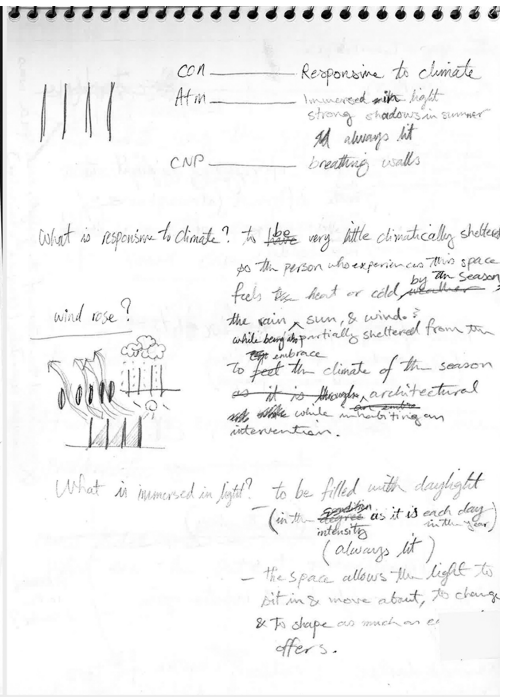 CON ______ Responsive to climate
ATM ______ Immersed with light
strong shadows in summer
always lit
CNP ______ breathing walls
What is responsive to climate? to be very little climatically sheltered
so the person who experiences this space
feels the heat or cold by the season
wind rose?
the rain, sun, & wind.
while being partially sheltered from the
embrace
To feel the climate of the season
as it is through architectural
while inhabiting an
intervention.
What is immersed in light? - to be filled with daylight
(in the intensity as it is each day in the year)
(always lit)
- the space allows the light to
sit in & move about, to change
& to shape as much as
offers.